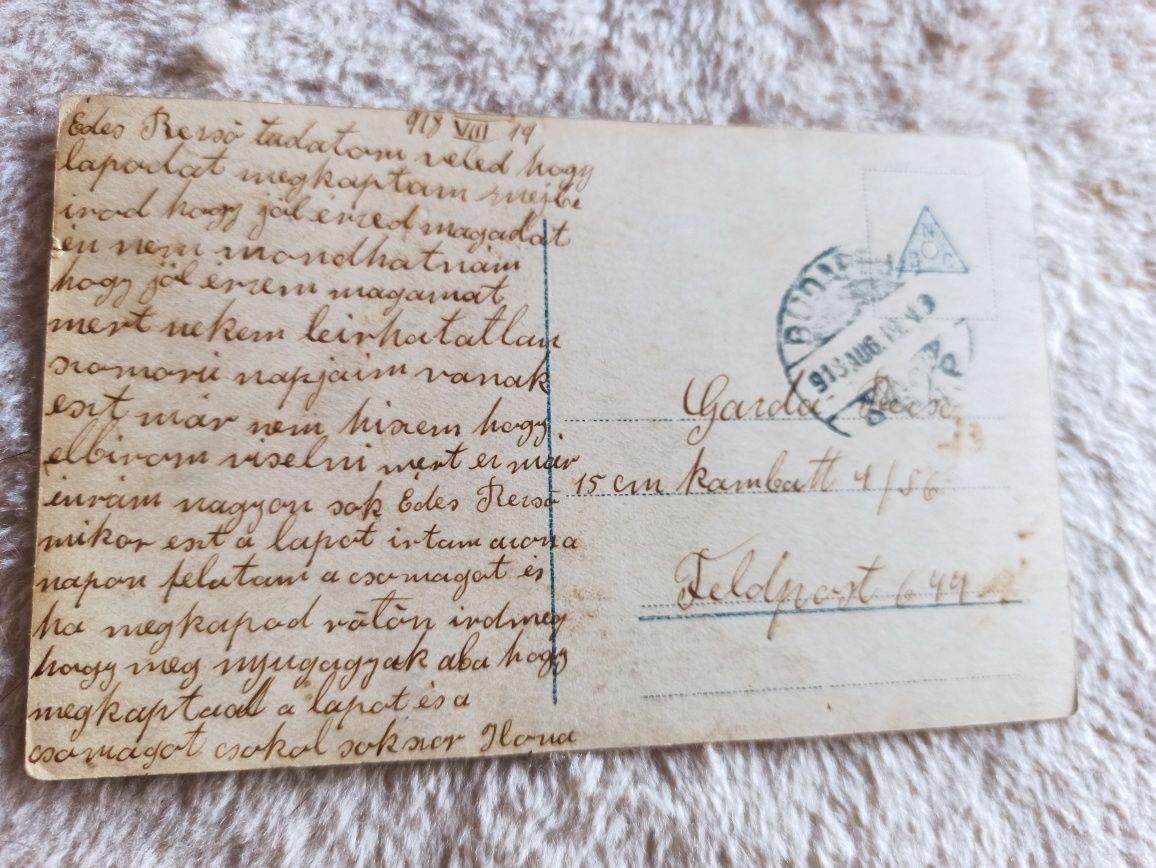 918 VIII 19
Édes Rezső tudatom veled hogy
lapodat megkaptam mejbe
irod hogy jól érzed magadat
én nem mondhatnám
hogy jól érzem magamat
mert nekem leirhatatlan
szomorú napjaim vanak
ezt már nem hiszem hogy
elbirom viselni mert ez már
énrám nagyon sok Édes Rezső
mikor ezt a lapot irtam azona
napon feladtam a csomagot és
ha megkapod rötön irdmeg
hogy meg nyugagyak aba hogy
megkaptad a lapot és a
csomagot csokol sokszor Ilona
NBC
BUDAPEST
918 AUG.
Garda Rezső
15 cm kambatt 4/56
Feldpost 644